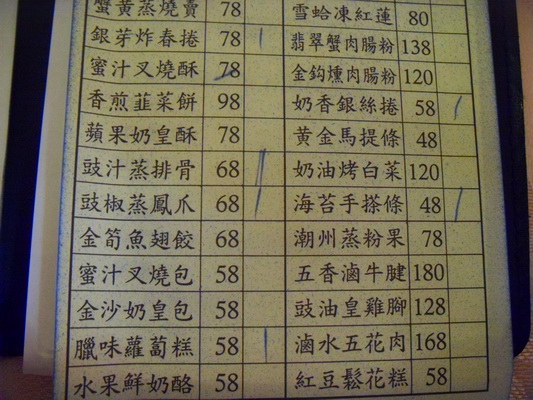 蟹黃蒸燒賣 78
銀芽炸春捲 78
蜜汁叉燒酥 78
香煎韮菜餅 98
蘋果奶皇酥 78
豉汁蒸排骨 68
豉椒蒸鳳爪 68
金筍魚翅餃 68
蜜汁叉燒包 58
金沙奶皇包 58
臘味蘿蔔糕 58
水果鮮奶酪 58
雪蛤凍紅蓮 80
翡翠蟹肉腸粉 138
金鈎燻肉腸粉 120
奶香銀絲捲 58
黃金馬提條 48
奶油烤白菜 120
海苔手搽條 48
潮州蒸粉果 78
五香滷牛腱 180
豉油皇雞腳 128
滷水五花肉 168
紅豆鬆花糕 58